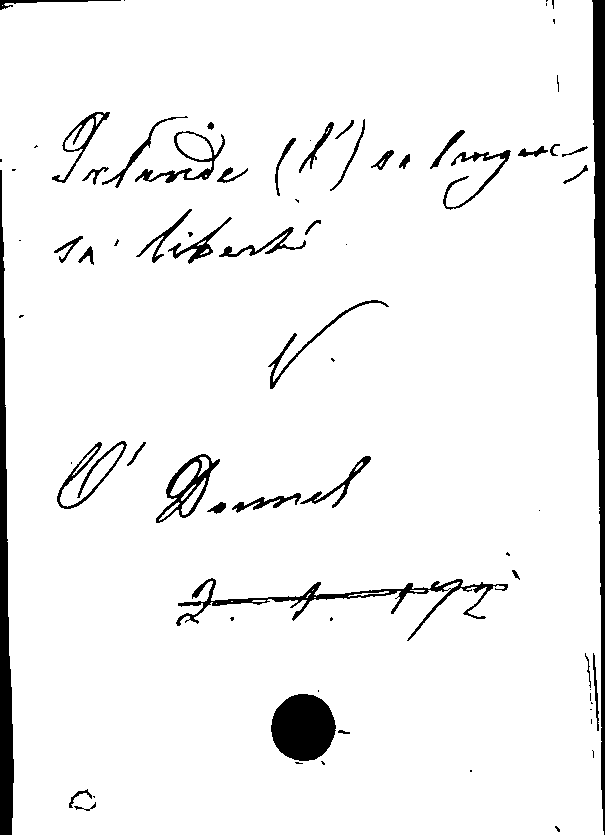 Irlande (l') sa langue,
sa liberté
V.
O' Donnel
2. 1. 172